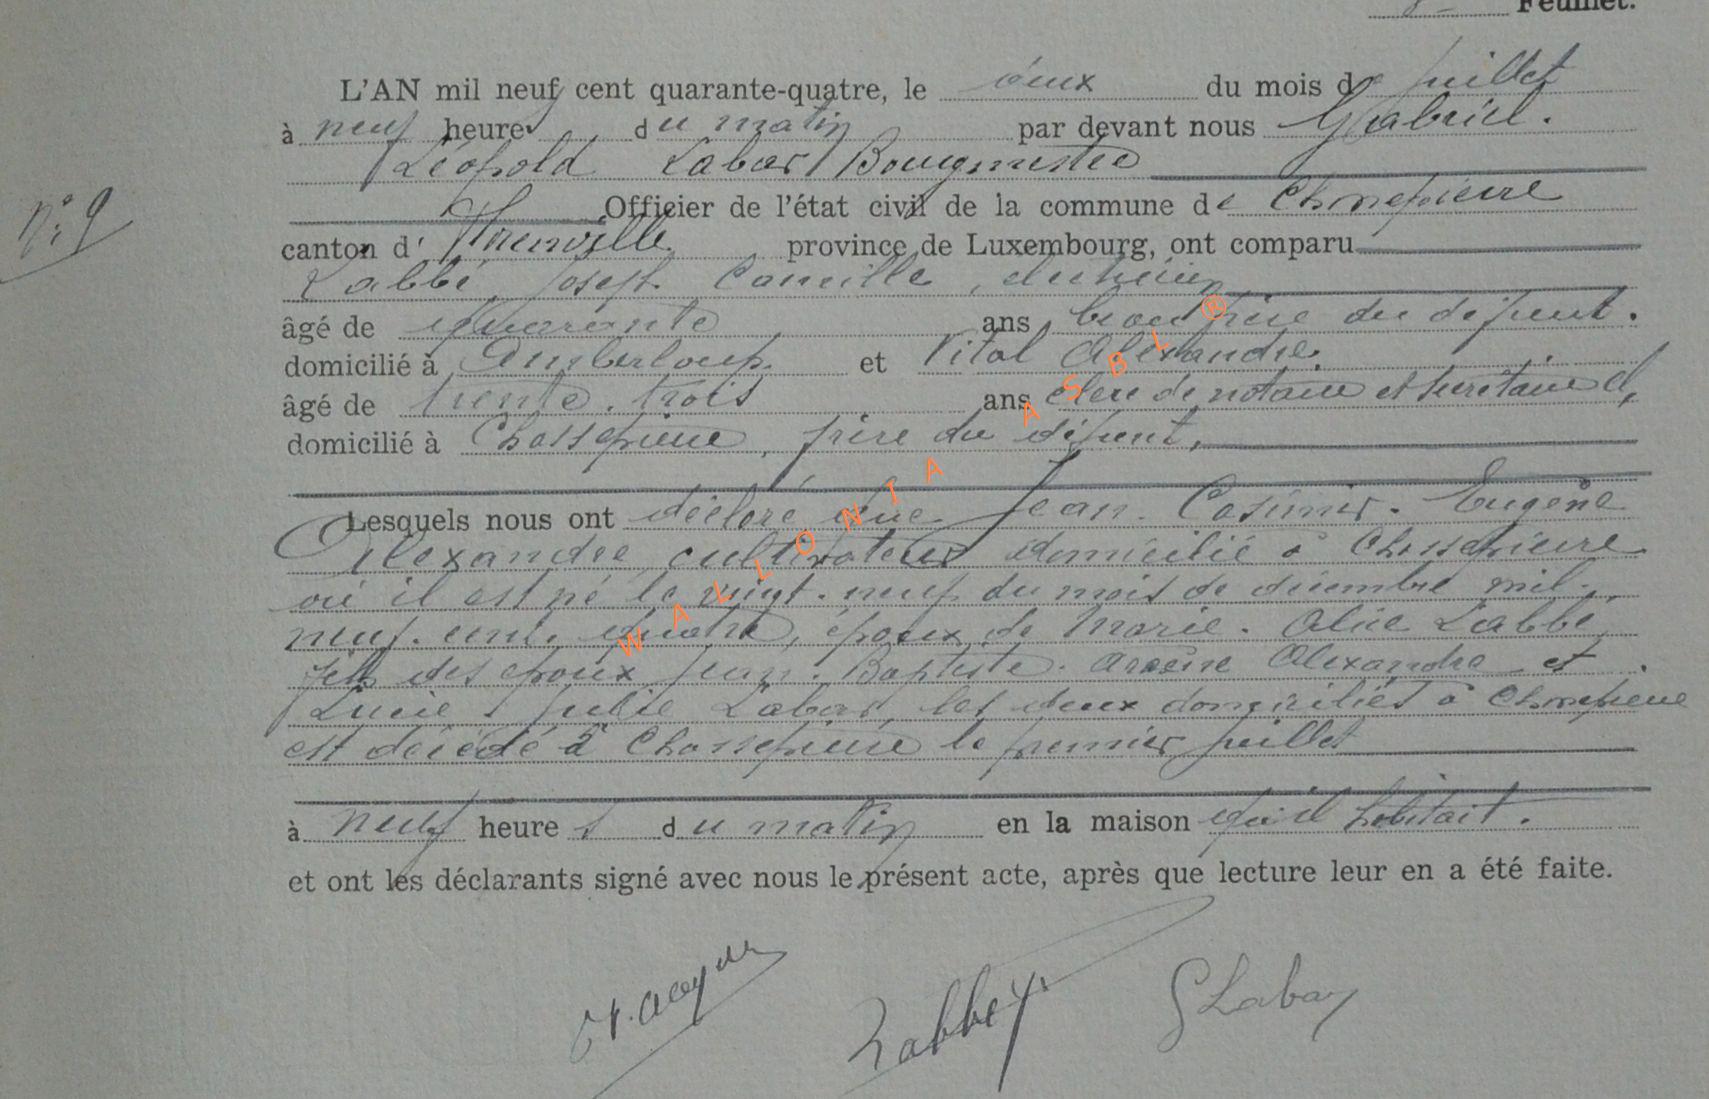 Feuillet.
L'AN mil neuf cent quarante-quatre, le deux du mois de juillet
à neuf heures du matin par devant nous Gabriel.
Léopold Labar Bourgmestre
N° 9
Officier de l'état civil de la commune de Chassepierre
canton d' Florenville province de Luxembourg, ont comparu
Labbé Joseph Camille,
âgé de quarante ans beau frère du défunt.
domicilié à Amberloup. et Vital Alexandre.
âgé de trente. trois ans clerc de notaire et secrétaire
domicilié à Chassepierre, frère du défunt,
Lesquels nous ont déclaré que Jean. Casimir. Eugène
Alexandre cultivateur domicilié à Chassepierre
où il est né le vingt. neuf du mois de décembre mil.
neuf. cent. quatre, époux de Marie. Alice Labbé
fils des époux Jean. Baptiste. Arsène Alexandre et
Lucie Julie Labar, les deux domiciliés à Chassepierre
est décédé à Chassepierre le premier juillet
à neuf heures du matin en la maison qu'il habitait.
et ont les déclarants signé avec nous le présent acte, après que lecture leur en a été faite.
Labbé J. G Labar
WALLONIA ASBL ®